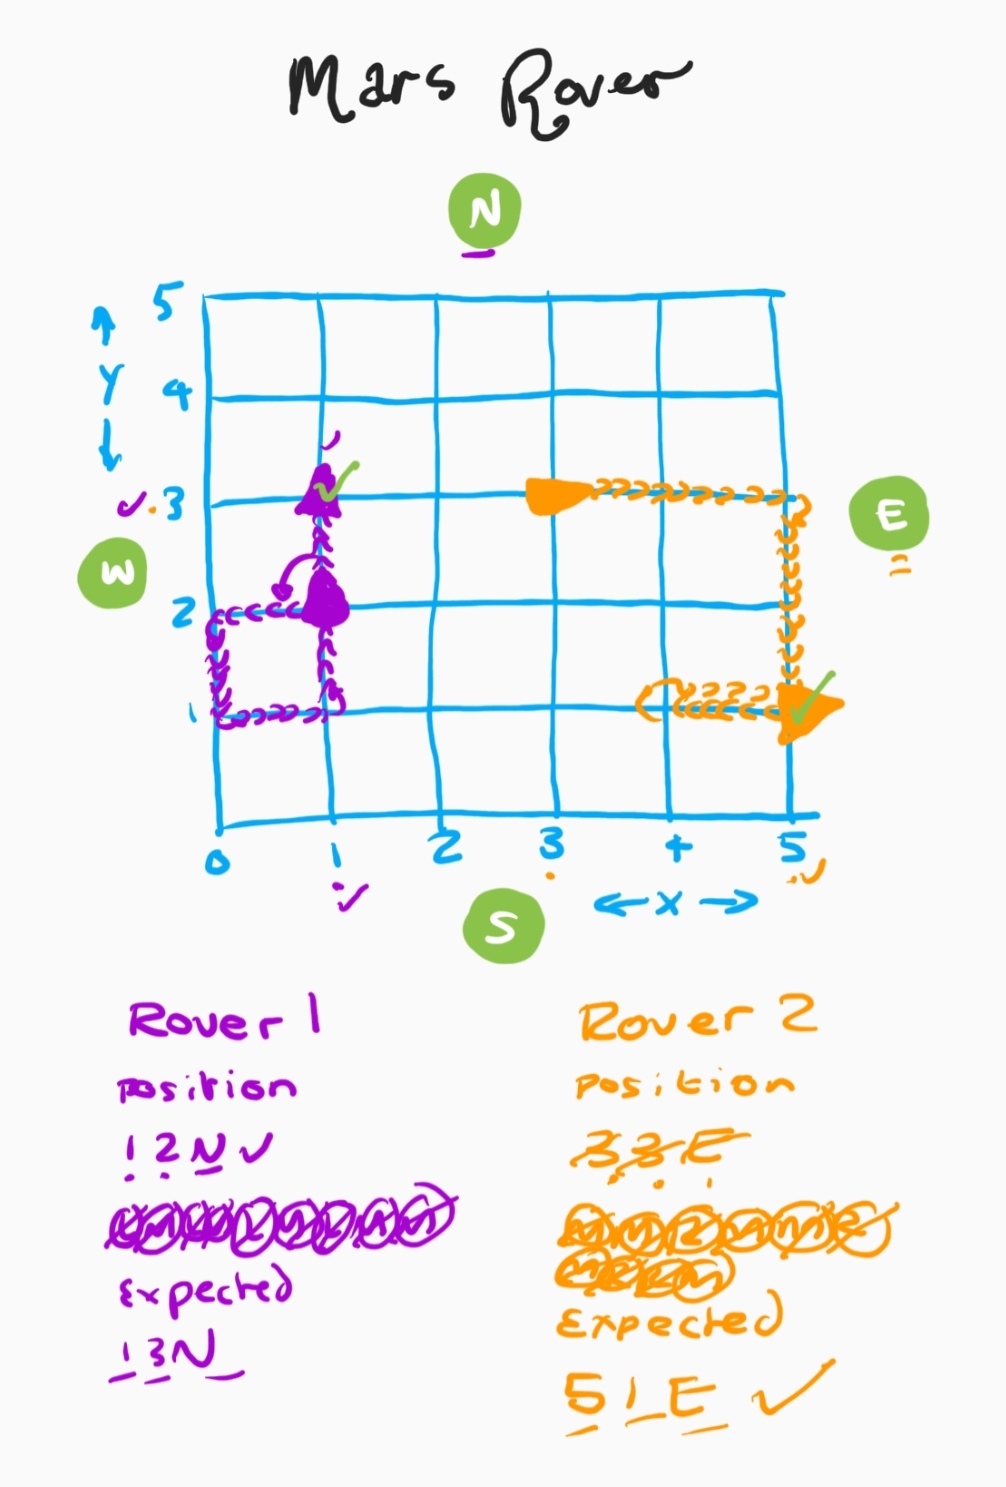 Mars Rover
N
5
Y
4
3
E
W
2
1
0 1 2 3 4 5
X
S
Rover 1
Position
1 2 N
Expected
1 3 N
Rover 2
Position
3 3 E
Expected
5 1 E